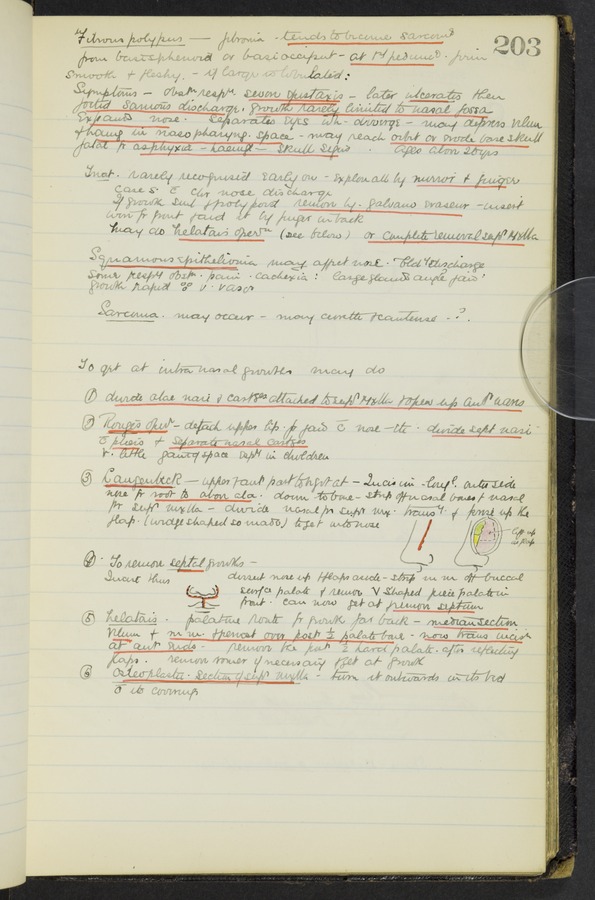 203
Fibrous polypus — fibroma - tends to become sarcoma
from basisphenoid or basiocciput - at 1st pedunc^d. firm
smooth & fleshy. - if large is lobulated:
Symptoms - obst^n resp^n severe epistaxis - later ulcerates then
foetid sanious discharge. growth rarely limited to nasal fossa
Expands nose. Separates eyes - may depress velum
& hang in nasopharyng. space - may reach orbit or erode base skull
fatal fr asphyxia - haemge - skull
Treat. rarely recognised early on - explore all by mirror & finger
cases c chr nose discharge
If growth small & polypoid remove by galvano ecraseur - insert
wire fr front guid it by finger in back
May do Nelatons oper^n (see below) or complete removal sup^r Mxlla
Squamous epithelioma may affect nose. Bld^y discharge
some resp^y obst^n. pain. cachexia: large glands angle jaw
growth rapid
Sarcoma. may occur - may curette & cauterise - ?.
To get at intra nasal growths may do
① divide alae nasi & cartges attached to sup^r Mxlla & open up ant^r nares
② Rouges oper^n - detach upper lip fr jaw c nose - divide sept nasi
& separate nasal cartges
v. little gain of space esp^y in children
③ Langenbeck — upper part to get at - Incision outer side
nose fr root to ala. down to bone - strip off nasal bones & nasal
pr sup^r mxlla - divide nasal pr sup^r mx. trans^y & force up the
flap. (wedge shaped so made) to get into nose
④ To remove septal growths -
Insert thus dissect nose up & flaps aside - strip m m off buccal
surface palate & remove V shaped piece palate in
front. can now get at & remove septum
⑤ Nelatons. palatine route fr growth far back - median section
velum & m m & periost over post ½ palate bone - now trans incis^n
at ant ends - remove the post ½ hard palate. after reflecting
flaps. remove vomer if necessary & get at growth
⑥ Osteoplastic section of sup^r mxlla - turn it outwards in its bed
c its coverings